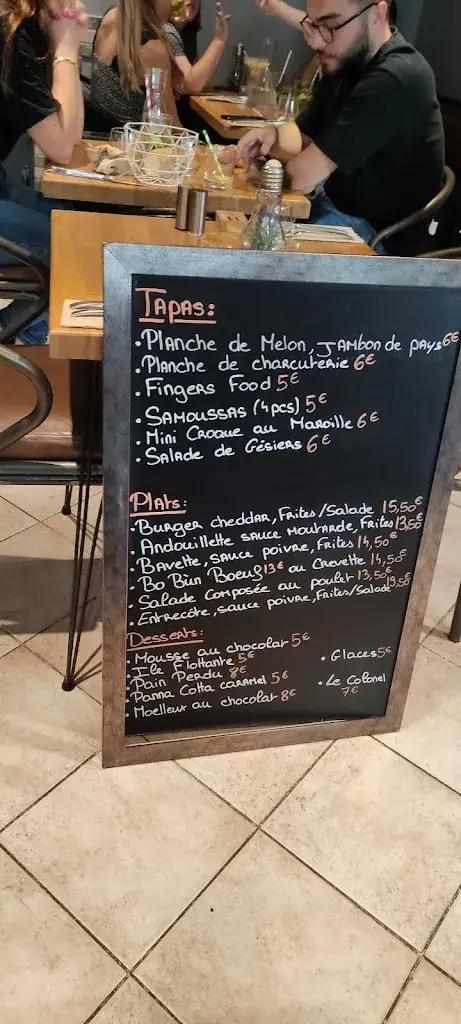 Tapas:
• Planche de Melon, Jambon de pays 6€
• Planche de charcuterie 6€
• Fingers Food 5€
• Samoussas (4pcs) 5€
• Mini Croque au Maroille 6€
• Salade de Gésiers 6€
Plats:
• Burger cheddar, Frites/Salade 15,50€
• Andouillette sauce moutarde, Frites 13,50€
• Bavette, sauce poivre, Frites 14,50€
• Bo Bùn Boeuf 13€ ou Crevette 14,50€
• Salade composée au poulet 13,50€
• Entrecôte, sauce poivre, Frites/Salade 19,50€
Desserts:
• Mousse au chocolat 5€
• Ile Flottante 5€
• Pain Perdu 8€
• Panna Cotta caramel 5€
• Moelleux au chocolat 8€
• Glaces 5€
• Le Colonel
7€